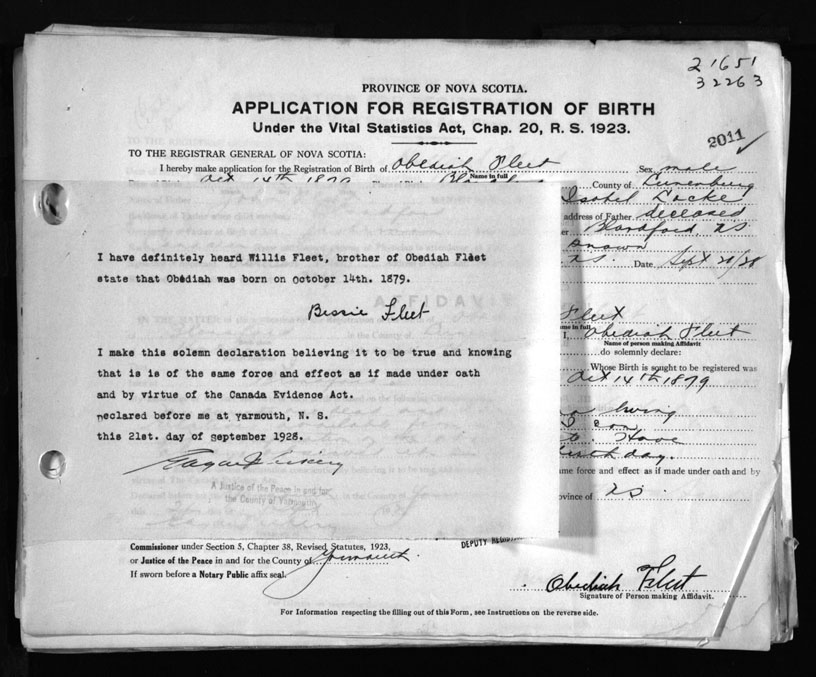 21651
32263
PROVINCE OF NOVA SCOTIA.
APPLICATION FOR REGISTRATION OF BIRTH
Under the Vital Statistics Act, Chap. 20, R. S. 1923.
2011
TO THE REGISTRAR GENERAL OF NOVA SCOTIA:
I hereby make application for the Registration of Birth of Obediah Fleet Sex male
Name in full
Oct 14th 1879 County of Lunenburg
Isabel Locke
address of Father deceased
Blandford NS
NS. Date Sept 20/28
I have definitely heard Willis Fleet, brother of Obediah Fleet
state that Obediah was born on October 14th. 1879.
Bessie Fleet
I make this solemn declaration believing it to be true and knowing
that is is of the same force and effect as if made under oath
and by virtue of the Canada Evidence Act.
Declared before me at Yarmouth, N. S.
this 21st. day of September 1928.
A Justice of the Peace in and for
the County of Yarmouth
AFFIDAVIT
Fleet
I, Obediah Fleet
Name of person making Affidavit
do solemnly declare:
Whose Birth is sought to be registered was
Oct 14th 1879
Have
day.
same force and effect as if made under oath and by
Province of NS.
Commissioner under Section 5, Chapter 38, Revised Statutes, 1923,
or Justice of the Peace in and for the County of Yarmouth.
If sworn before a Notary Public affix seal.
DEPUTY
Obediah Fleet
Signature of Person making Affidavit.
For Information respecting the filling out of this Form, see Instructions on the reverse side.